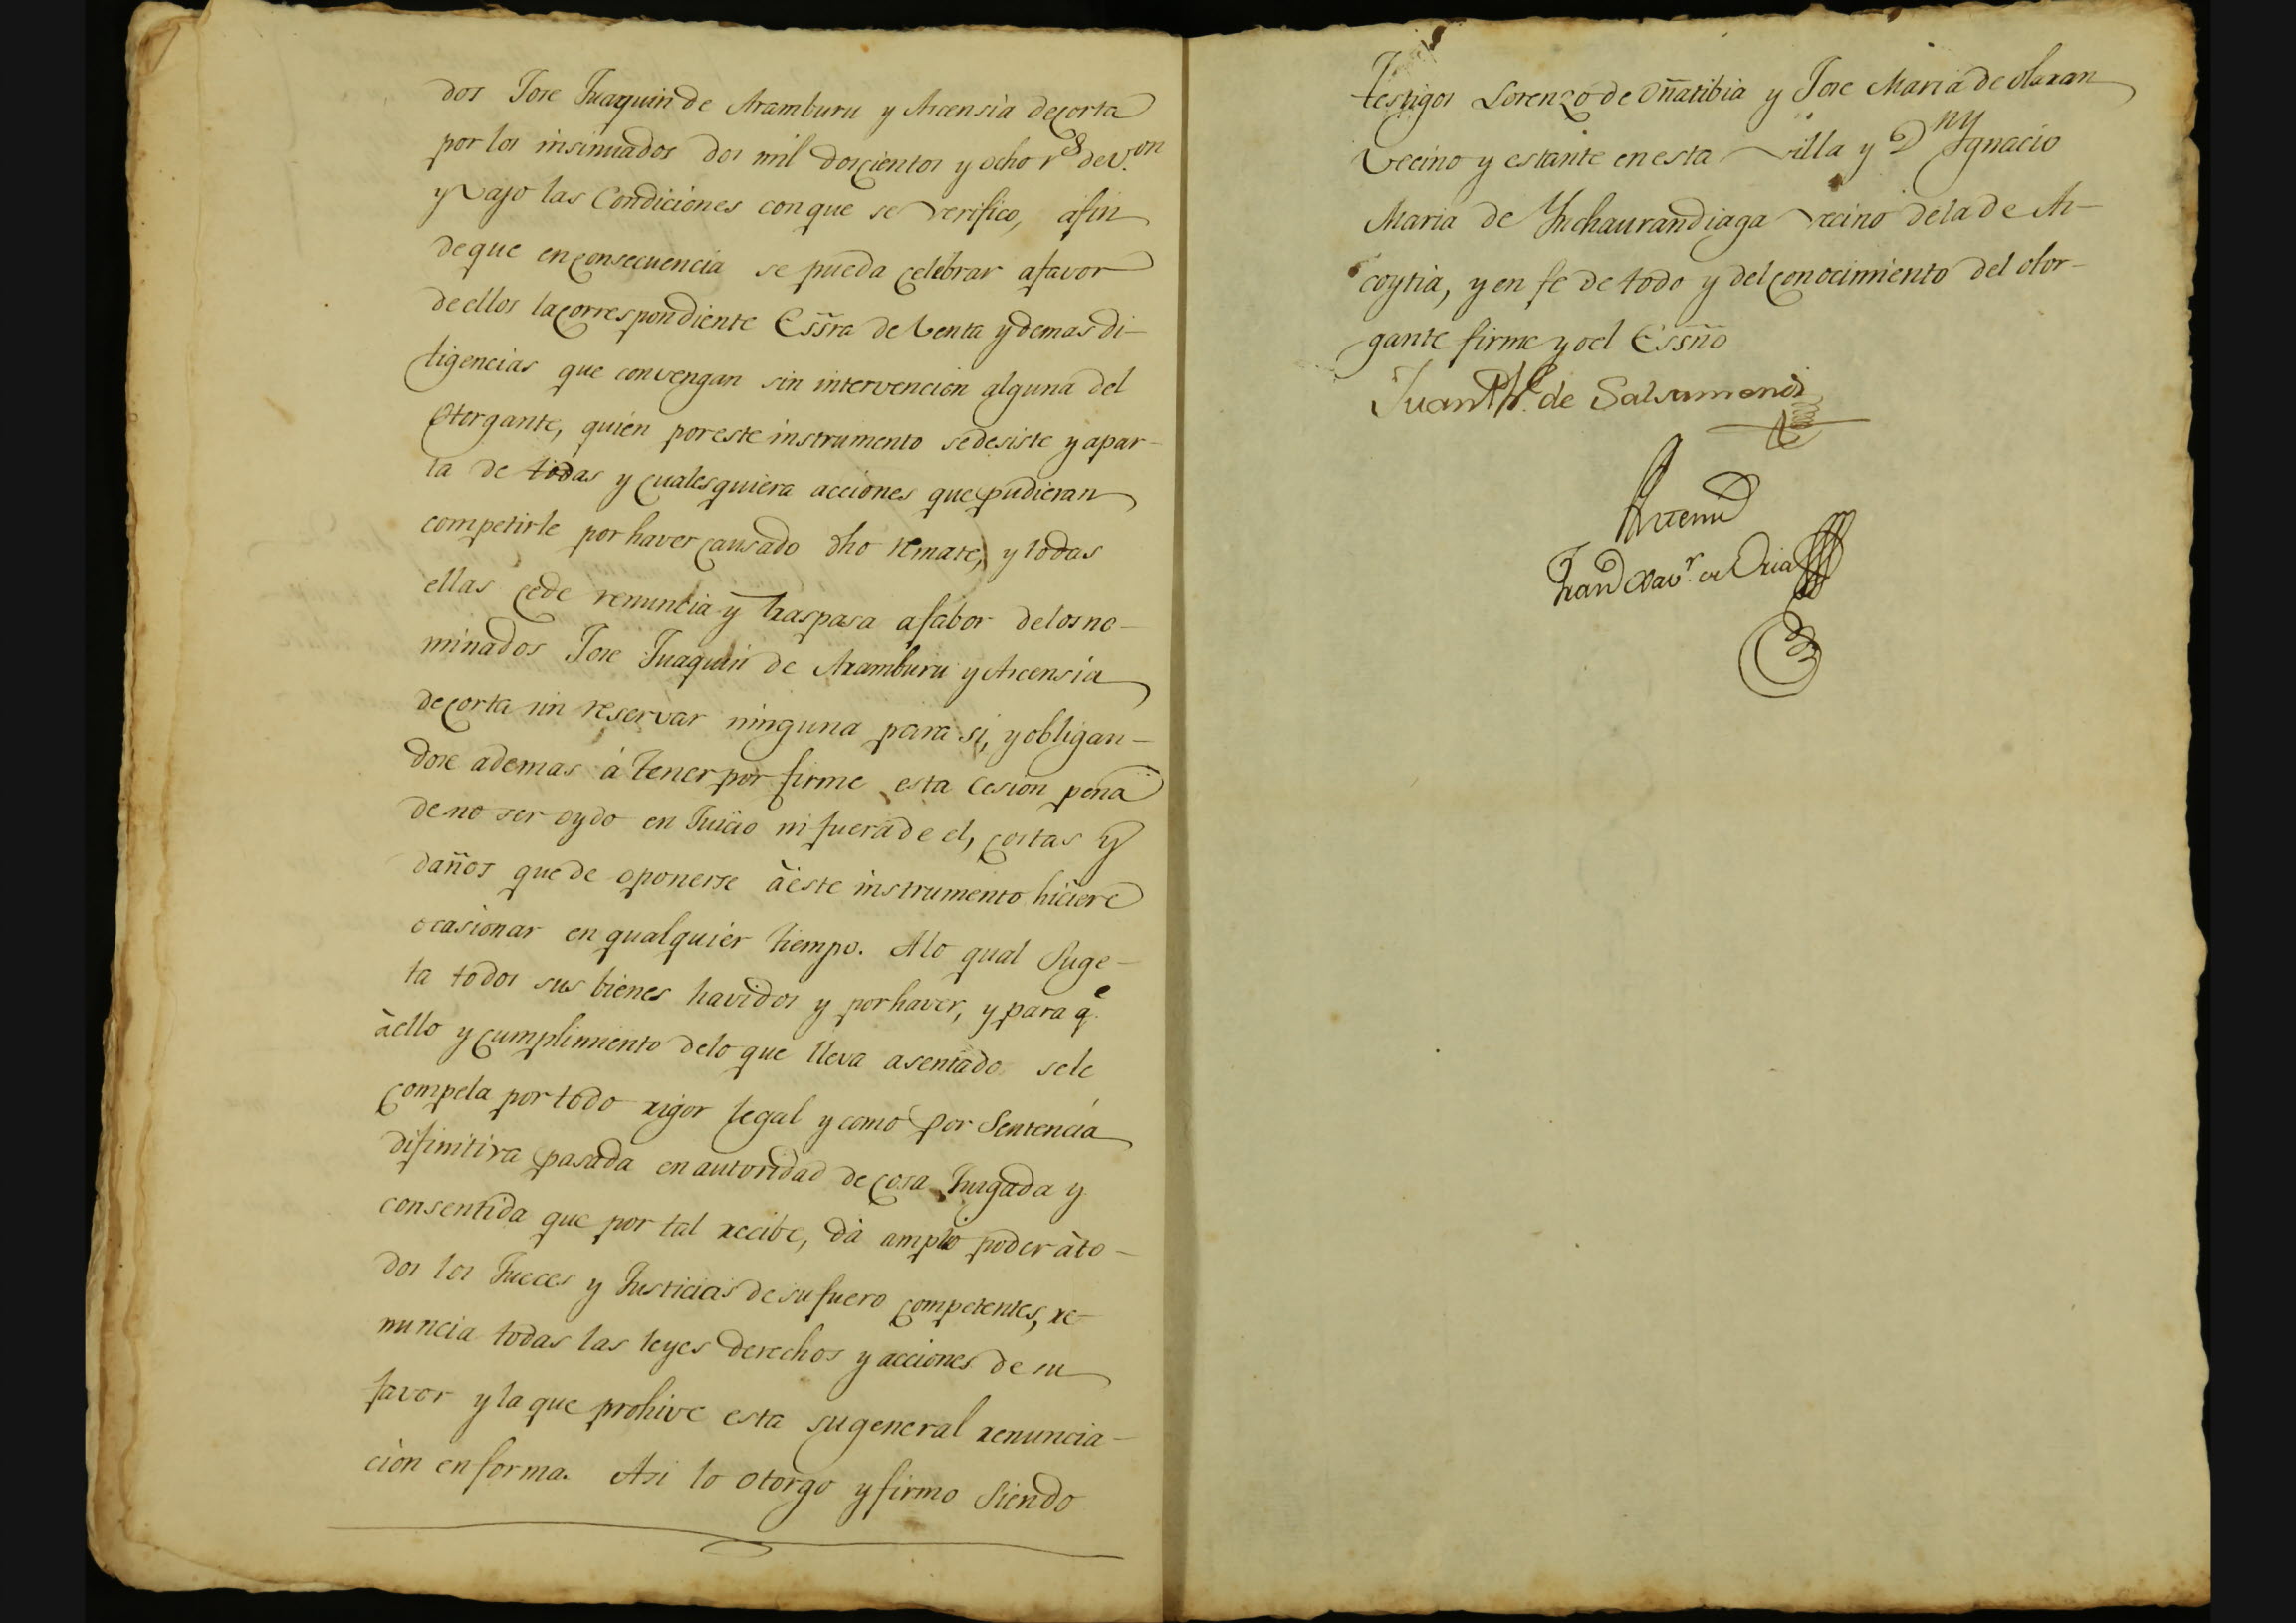 dos Jose Juaquin de Aramburu y Ascensia de Corta
por los insinuados dos mil doscientos y ocho rs de Von
y vajo las Condiciones con que se verifico, afin
de que en consecuencia se pueda celebrar a favor
de ellos la correspondiente Essra de Venta y demas di-
ligencias que convengan sin intervencion alguna del
Otorgante, quien por este instrumento se desiste y apar-
ta de todas y cualesquiera acciones que pudieran
competirle por haver causado dho remate, y todas
ellas cede renuncia y traspasa a fabor de los no-
minados Jose Juaquin de Aramburu y Ascensia
de Corta sin reservar ninguna para si, y obligan-
dose ademas á tener por firme esta Cesion pena
de no ser oydo en Juicio ni fuera de el, costas y
daños que de oponerse à este instrumento hiciere
ocasionar en qualquier tiempo. A lo qual Suge-
ta todos sus bienes havidos y por haver, y para qe
à ello y cumplimiento de lo que lleva asentado se le
compela por todo rigor legal y como por Sentencia
difinitiva pasada en autoridad de cosa Jusgada y
consentida que por tal recibe, dà amplio poder à to-
dos los Jueces y Justicias de su fuero competentes, re-
nuncia todas las leyes derechos y acciones de su
favor y la que prohive esta su general renuncia-
cion en forma. Asi lo otorgo y firmo Siendo
testigos Lorenzo de Oñatibia y Jose Maria de Olaran
vecino y estante en esta villa y Dn Ygnacio
Maria de Ynchaurandiaga vecino de la de Az-
coytia, y en fe de todo y del conocimiento del otor-
gante firme yo el Essño
Juan de Salsamendi
Antemi
Franco Xavr de Oria